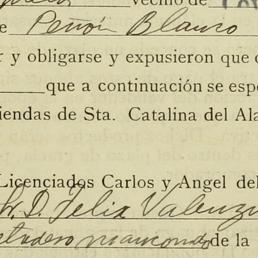 vecino de
e Peñón Blanco
r y obligarse y expusieron que
que a continuación se espe
iendas de Sta. Catalina del Ala
Licenciados Carlos y Angel del
D. Felix Valenzu
de la